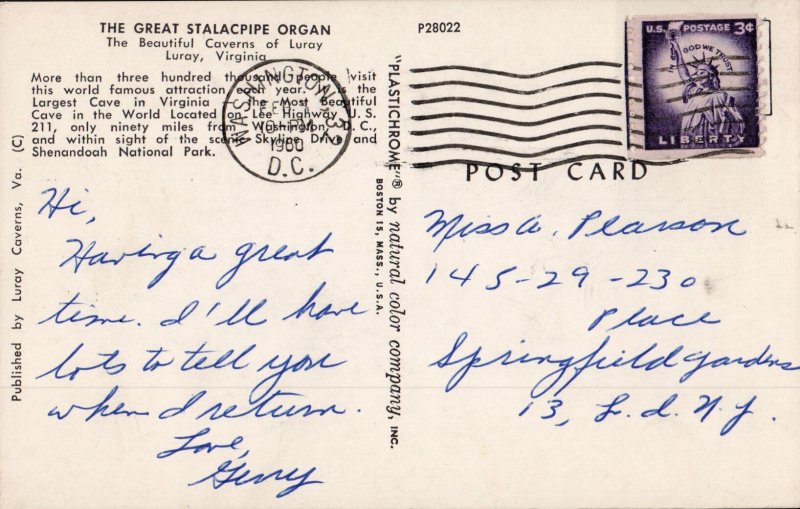 THE GREAT STALACPIPE ORGAN
The Beautiful Caverns of Luray
Luray, Virginia
More than three hundred thousand people visit
this world famous attraction each year. It is the
Largest Cave in Virginia — the Most Beautiful
Cave in the World Located on Lee Highway U. S.
211, only ninety miles from Washington, D. C.,
and within sight of the scenic Skyline Drive and
Shenandoah National Park.
Published by Luray Caverns, Va. (C)
Hi,
Having a great
time. I'll have
lots to tell you
when I return.
Love,
Gerry
P28022
"PLASTICHROME"® by natural color company, INC.
BOSTON 15, MASS., U.S.A.
WASHINGTON, 13
FEB
PM
1960
D.C.
U.S. POSTAGE 3¢
IN GOD WE TRUST
LIBERTY
POST CARD
Miss A. Pearson
145-29-230
Place
Springfield Gardens
13, L. I. N. Y.